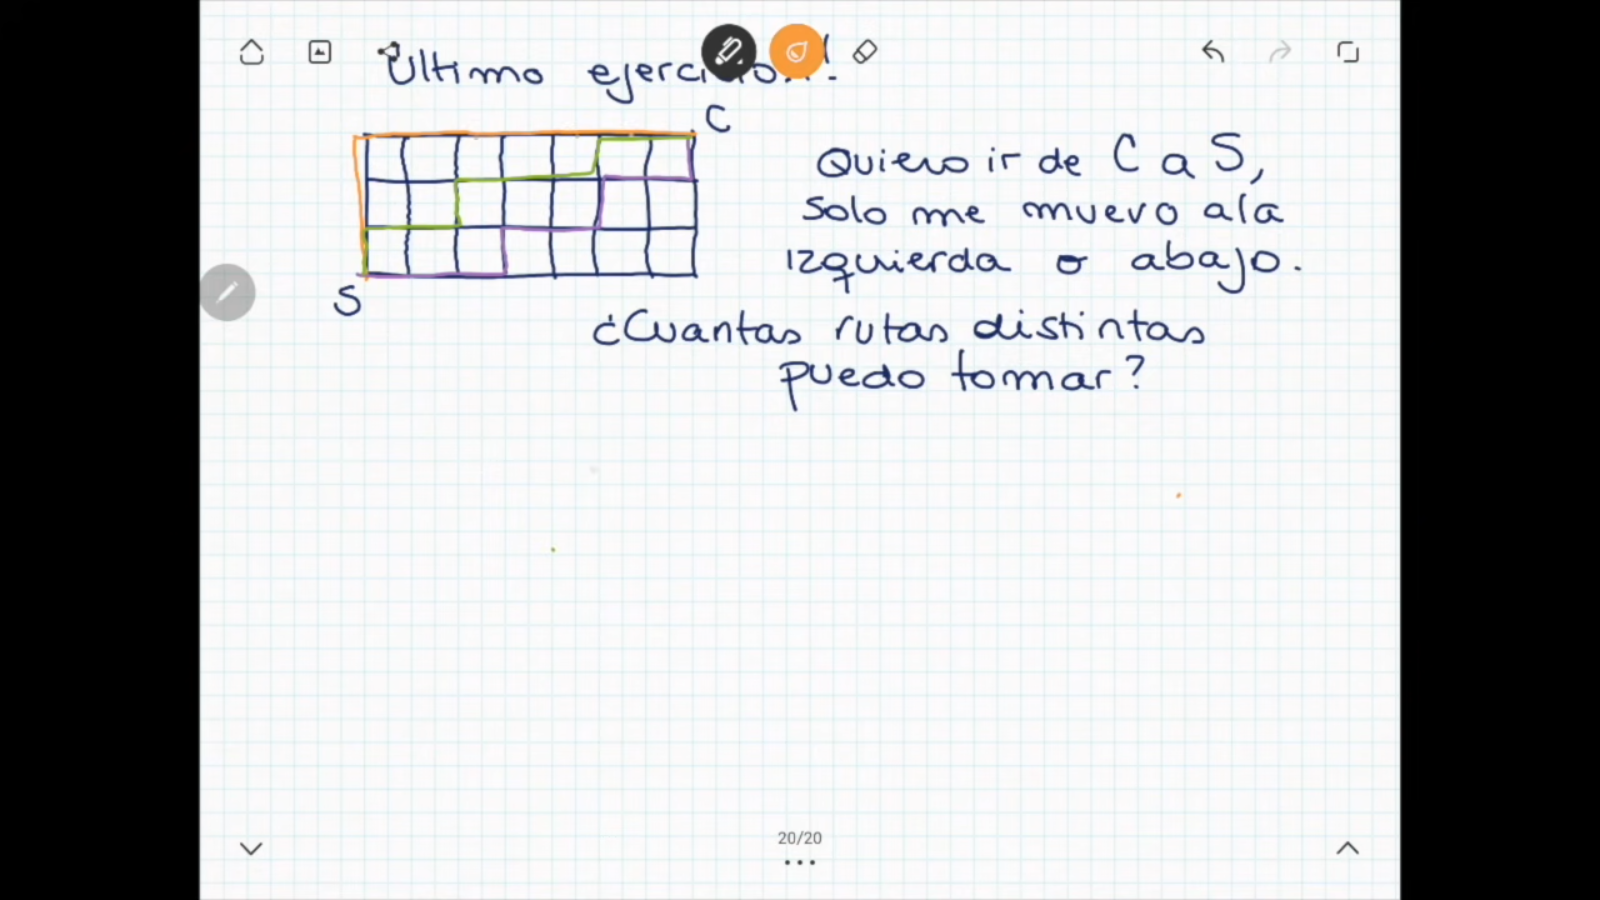 Ultimo
C
Quiero ir de C a S,
solo me muevo a la
izquierda o abajo.
S
¿Cuantas rutas distintas
puedo tomar?
20/20